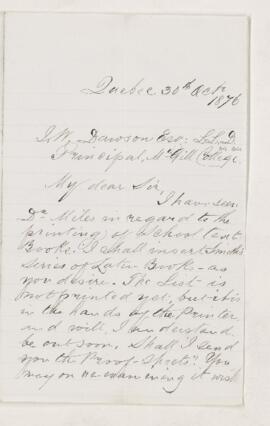 Quebec 30th Octr
1876
J. W. Dawson Esq: L.L.D.
Principal, McGill College.
My dear Sir,
I have seen
Dr Miles in regard to the
printing of School text
Books. I shall insert Smith's
series of Latin Books - as
you desire. The List is
not printed yet, but it is
in the hands of the Printer
and will, I understand
be out soon. Shall I send
you the Proof-Sheets? You
may on re-examining it wish